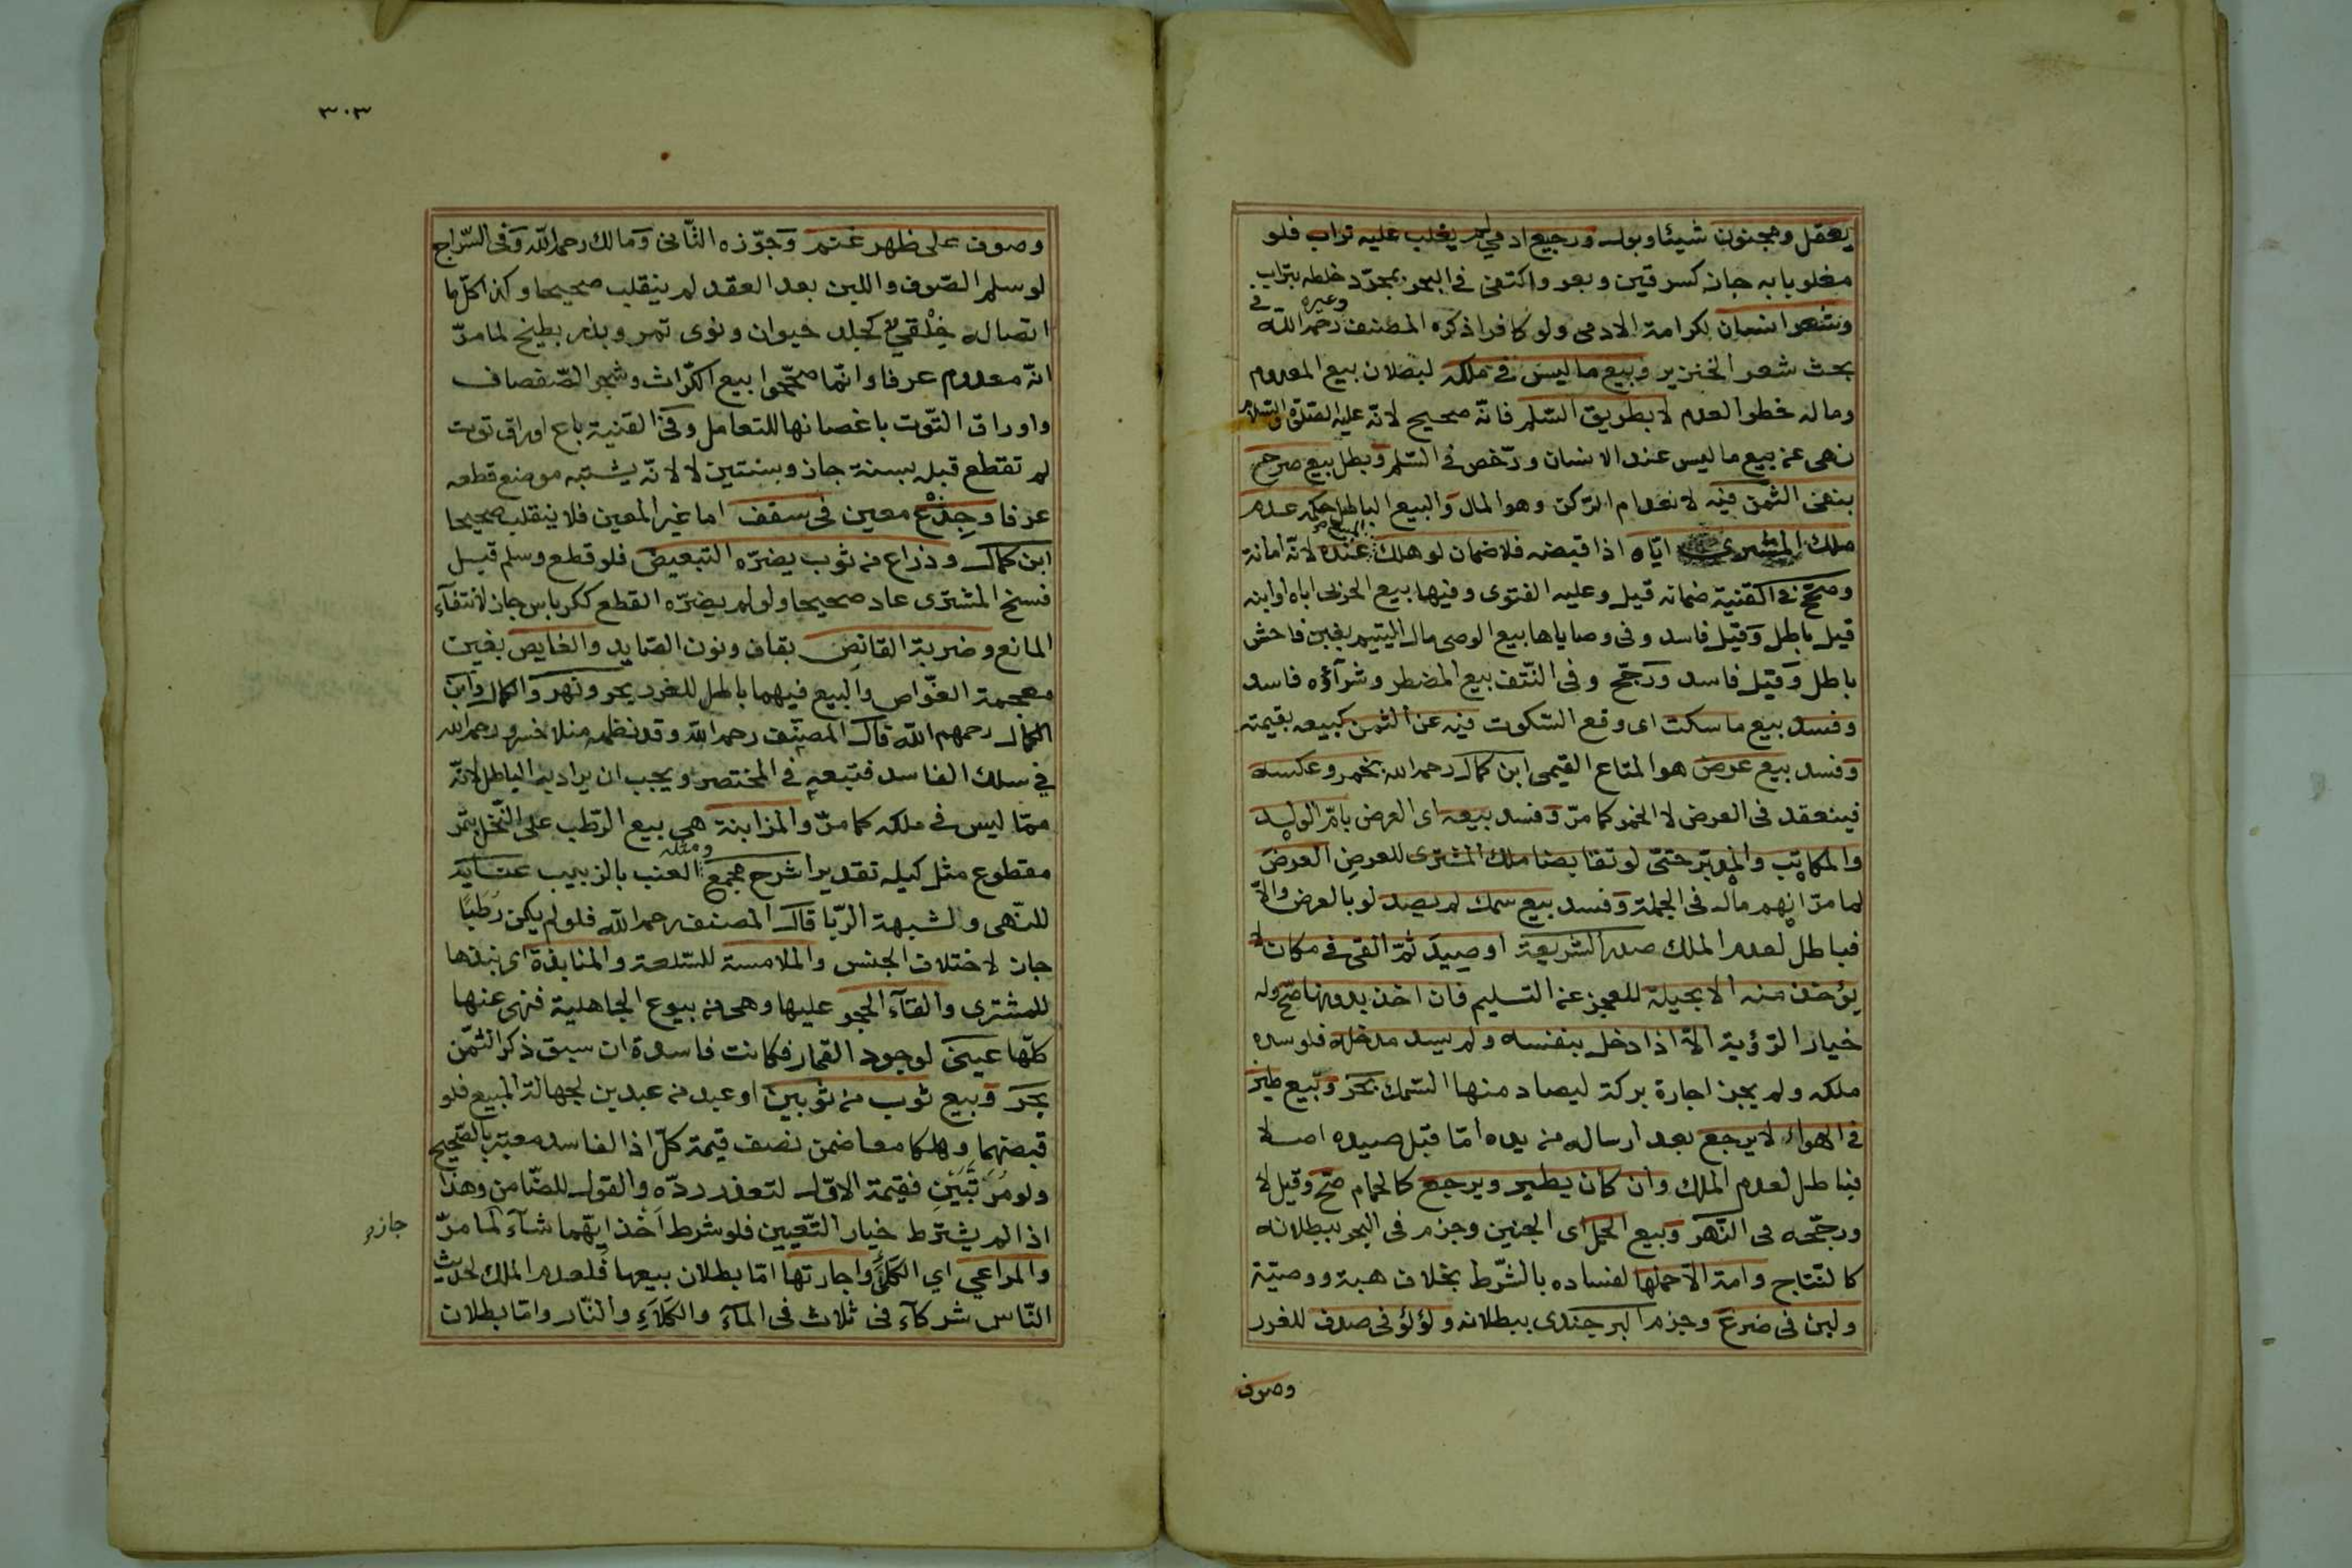 يعقل ومجنون شيئا وبول ورجيع ادمي لم يغلب عليه تراب فلو
مغلوبا به جاز كسرقين وبعر واكتفى في البحر بمجرّد خلطه بتراب
وشعر انسان لكرامة الادمى ولو كافرا ذكره المصنف رحمه اللّه وغيره في
بحث شعر الخنزير وبيع ما ليس في ملكه لبطلان بيع المعدوم
وماله خطر العدم لا بطريق السّلم فانّه صحيح لانّه عليه الصّلوة والسّلام
نهى عن بيع ما ليس عند الانسان ورّخص في السّلم وبطل بيع صرح
بنفى الثّمن فيه لانعدام الرّكن وهو المال والبيع الباطل حكمه عدم
ملك المشترى ايّاه اذا قبضه فلا ضمان لو هلك المبيع عنده لانّه امانة
وصحّح في القنية ضمانه قيل وعليه الفتوى وفيها بيع الحربى اباه او ابنه
قيل باطل وقيل فاسد وفى وصاياها بيع الوصى مال اليتيم بغبن فاحش
باطل وقيل فاسد ورجّح وفى النّتف بيع المضطر وشرآؤه فاسد
وفسد بيع ما سكت اى وقع السّكوت فيه عن الثّمن كبيعه بقيمته
وفسد بيع عرض هو المتاع القيمى ابن كمال رحمه الله بخمر وعكسه
فينعقد فى العرض لا الخمر كما مرّ وفسد بيعه اى العرض بامّ الولد
والمكاتب والمدبّر حتّى لو تقابضا ملك المشترى للعرض العرض
لما مرّ انهم مال فى الجملة وفسد بيع سمك لم يصد لو بالعرض والاّ
فباطل لعدم الملك صدر الشريعة او صيد ثمّ القى في مكان لا
يؤخذ منه الا بحيلة للعجز عن التسليم فان اخذ بدونها صّح وله
خيار الرّؤية الاّ اذا دخل بنفسه ولم يسد مدخله فلو سده
ملكه ولم يجز اجارة بركة ليصاد منها السّمك بحر وبيع طير
في الهواء لا يرجع بعد ارساله من يده امّا قبل صيده اصلا
فباطل لعدم الملك وان كان يطير ويرجع كالحمام صّح وقيل لا
ورجّحه في النّهر وبيع الحمل اى الجنين وجزم فى البحر ببطلانه
كالنّتاج وامة الاّ حملها لفساده بالشّرط بخلاف هبة ووصيّة
ولبن فى ضرع وجزم البرجندى ببطلانه ولؤلؤ فى صدف للغرر
وصوف
٣٠٣
وصوف على ظهر غنم وجوّزه الثّانى ومالك رحمه اللّه وفى السّراج
لو سلم الصّوف واللبن بعد العقد لم ينقلب صحيحا وكذا كلّ ما
اتصاله خِلْقيّ كجلد حيوان ونوى تمر وبذر بطيخ لما مرّ
انّه معدوم عرفا وانّما صحّحوا بيع الكرّاث وشجر الصّفصاف
واوراق التّوت باغصانها للتعامل وفى القنية باع اوراق توت
لم تقطع قبل بسنة جاز وبسنتين لا لانّه يشتبه موضع قطعه
عرفا وجِذْع معين فى سقف اما غير المعين فلا ينقلب صحيحا
ابن كمال وذراع من ثوب يضرّه التبعيض فلو قطع وسلم قبل
فسخ المشترى عاد صحيحا ولو لم يضرّه القطع ككرباس جاز لانتفآء
المانع وضربة القانص بقاف ونون الصّايد والغايص بغين
معجمة الغوّاص والبيع فيهما باطل للغرر بحر ونهر والكمال وابن
الكمال رحمهم اللّه قال المصنّف رحمه اللّه وقد نظمه منلا خسرو رحمه الله
في سلك الفاسد فتبعه في المختصر ويجب ان يراد به الباطل لانّه
ممّا ليس في ملكه كما مرّ والمزابنة هي بيع الرّطب على النّخل بتمر
مقطوع مثل كيله تقديرا شرح مجمع ومثله العنب بالزبيب عنايه
للنّهى ولشبهة الرّبا قال المصنف رحمه اللّه فلو لم يكن رُطَبًا
جاز لاختلاف الجنس والملامسة للسّلعة والمنابذة اى نبذها
للمشترى والقآء الحجر عليها وهى من بيوع الجاهلية فنهى عنها
كلّها عينى لوجود القمار فكانت فاسدة ان سبق ذكر الثّمن
بحر وبيع ثوب من ثوبين او عبد من عبدين لجهالة المبيع فلو
قبضهما وهلكا معا ضمن نصف قيمة كلّ اذ الفاسد معتبر بالصّحيح
ولو مُرَتَّبَيْنِ فقيمة الاوّل لتعذر ردّه والقول للضّامن وهذا
اذا لم يشترط خيار التّعيين فلو شرط اخذ ايّهما شآء جاز لما مرّ
والمراعي اي الكَلَأ واجارتها امّا بطلان بيعها فلعدم الملك لحديث
النّاس شركآء فى ثلاث فى المآء والكَلَآءِ والنّار وامّا بطلان